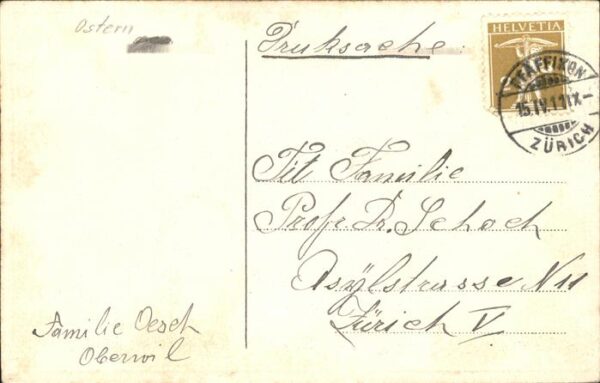 Ostern
Druksache
HELVETIA
PFÄFFIKON
15.IV.11.IX-
ZÜRICH
Tit Familie
Profr. Dr. Schoch
Asylstrasse N 11
Zürich V
Familie Oesch
Oberwil